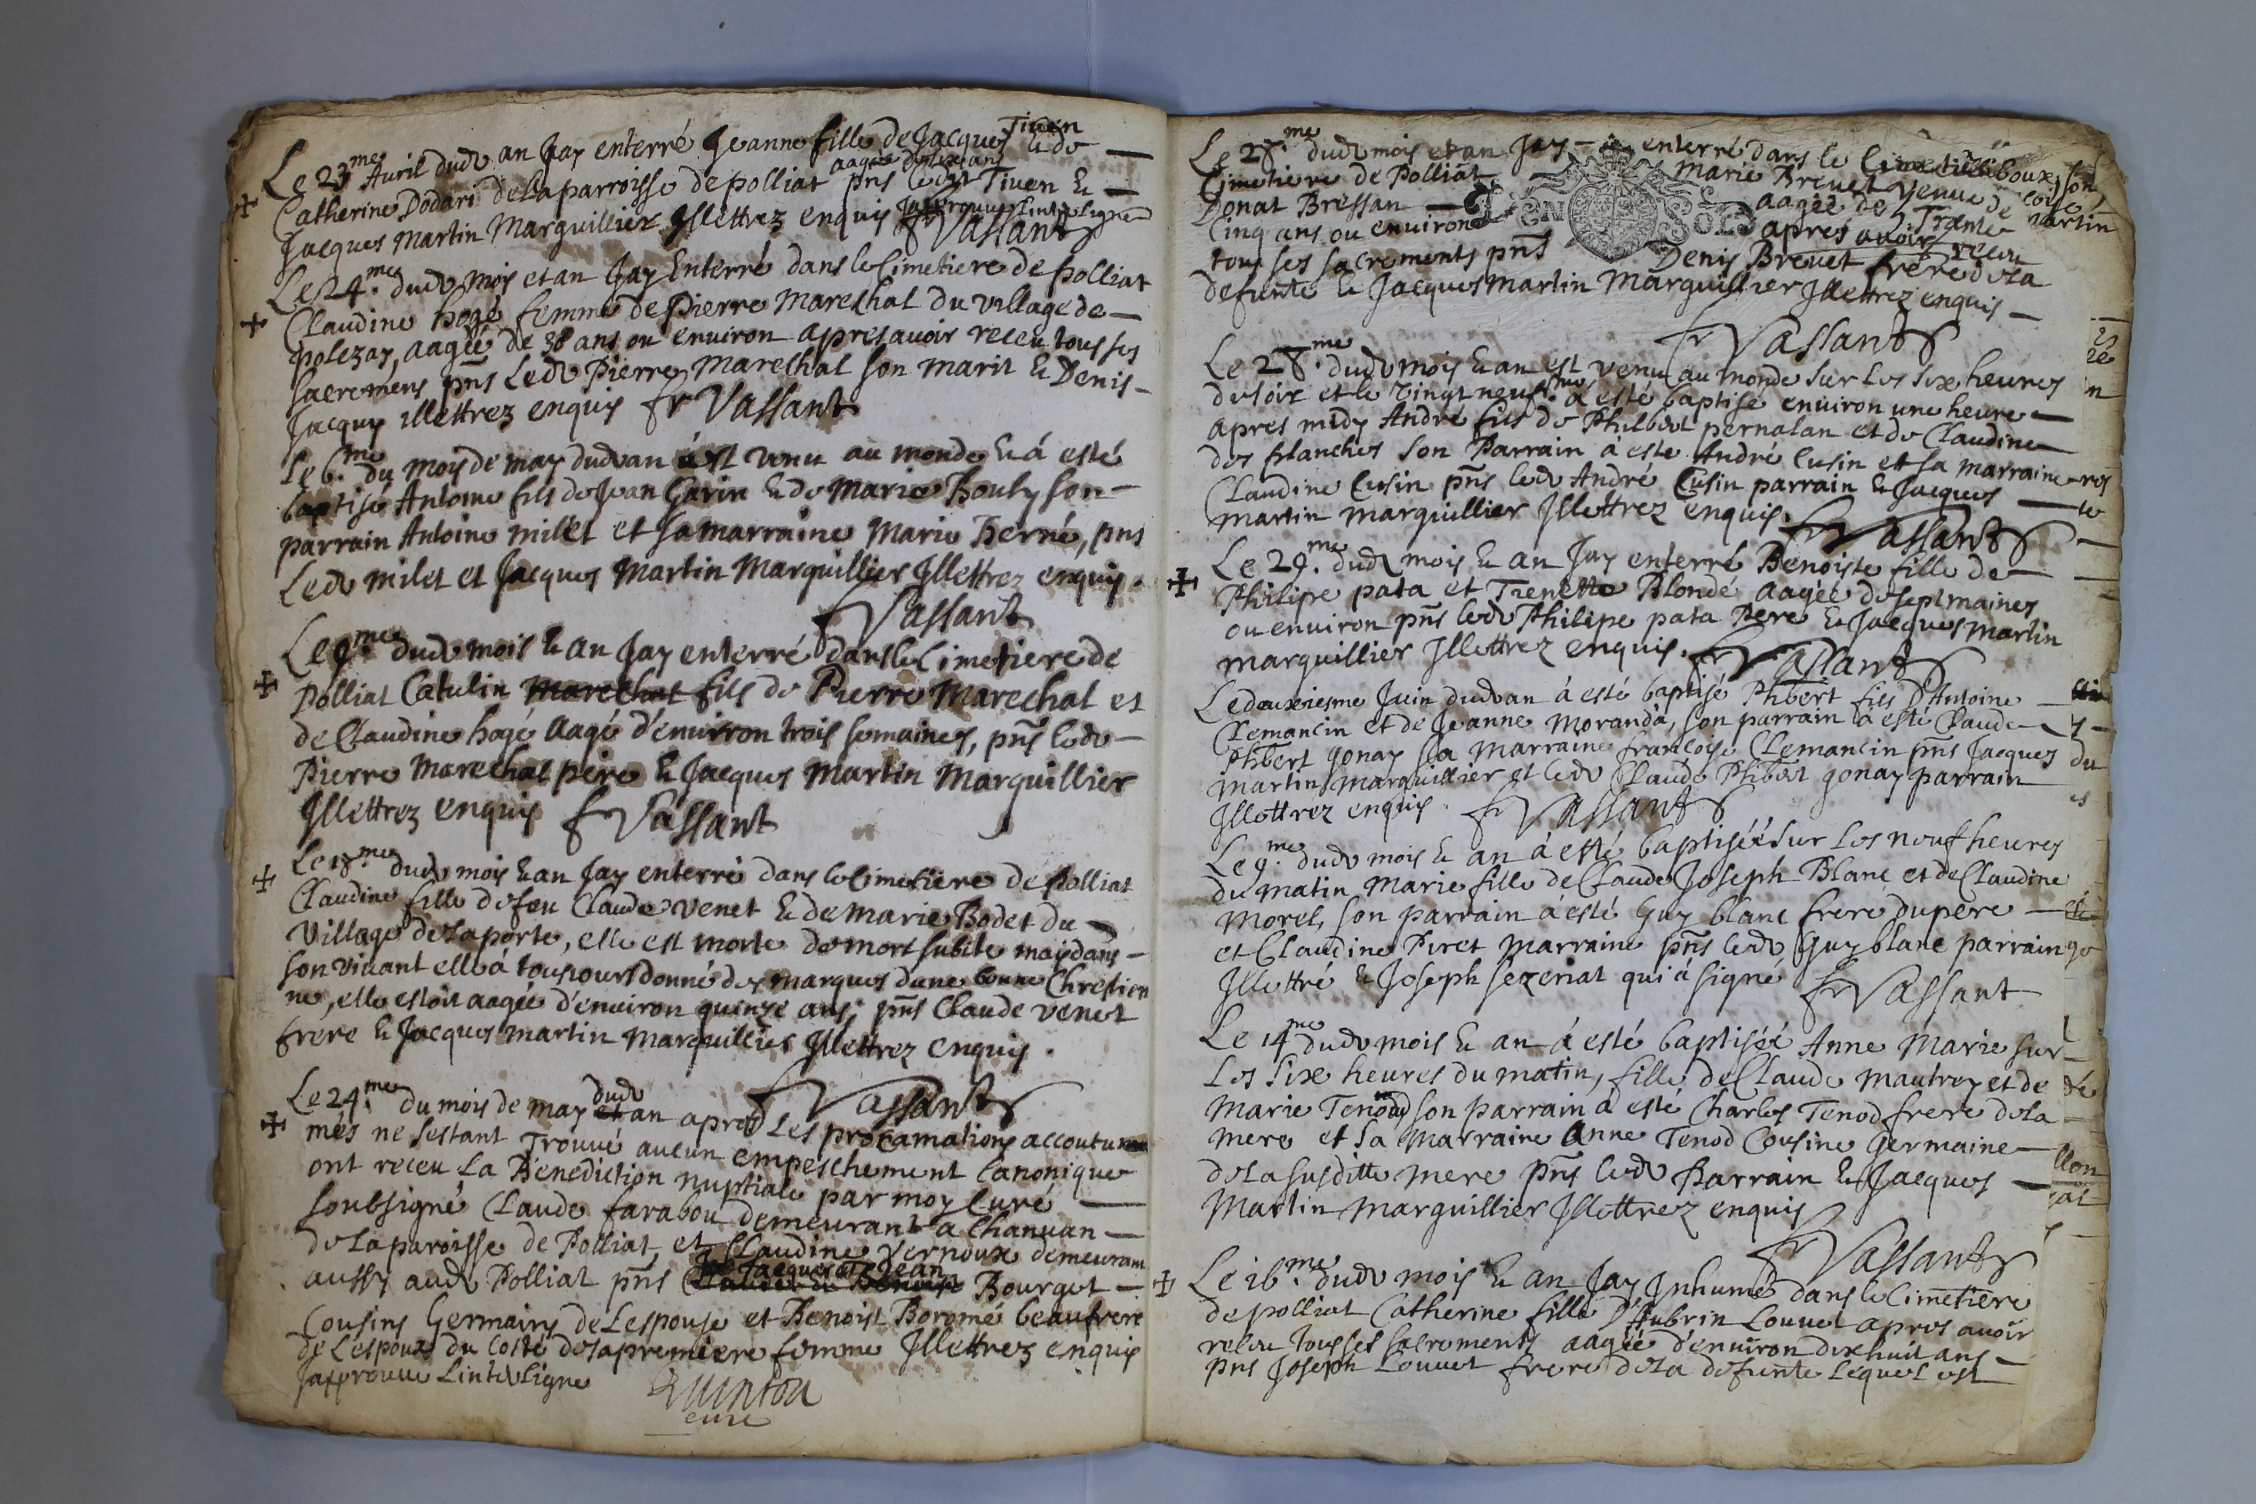 Le 23me Avril dudt an Jay enterré Jeanne fille de Jacques Tiven & de
Catherine Dodari de la parroisse de polliat aagée pns ledt Tiven &
Jacques Martin Marguillier Illettrez enquis Japprouve linterligne
fr Vassant
Le 24.me dudt mois et an Jay Enterré dans le Cimetiere de polliat
Claudine hogé femme de Pierre Marechal du village de
polezay, aagée de 38 ans ou environ apres avoir receu tous ses
sacremens pns Ledt Pierre Marechal son marit & Denis
Jacquy illettrez enquis fr Vassant
Le 6.me du moys de may dudt an est venu au monde & á esté
baptisé Antoine fils de Jean Gavin & de Marie Bouly son
parrain Antoine milet et sa marraine Marie Berné, pns
Ledt milet et Jacques Martin Marguillier Illettrez enquis.
fr Vassant
Le 9.me dudt mois & an Jay enterré dans le Cimetiere de
Polliat Catulin Marechal fils de Pierre Marechal et
de Claudine hogé aagé d'environ trois semaines, pns ledt
Pierre Marechal pere & Jacques Martin Marguillier
Illettrez enquis fr Vassant
Le 18.me dudt mois & an Jay enterré dans le Cimetiere de Polliat
Claudine fille de feu Claude venet & de Marie Bodet du
Village de Laporte, elle est morte de mort subite mais dans
son vivant elle á tousiours donné des marques dune bonne Chrestien
ne, elle estoit aagée d'environ quinze ans; pns Claude venet
frere & Jacques martin Marguillier Illettrez enquis.
fr Vassant
Le 24.me du mois de may dudt an apres Les proclamations accoutu
més ne sestant Trouvé aucun empeschement Canonique
ont receu La Benediction nuptiale par moy Curé
soubsigné Claude farabou demeurant a Chanuan
de la paroisse de Polliat, et Claudine Vernoux demeurant
aussy audt Polliat pns Jacques et Jean Bourget
Cousins Germains de Lespouse et Benoist Boromé beaufrere
de Lespoux du Costé de sa premiere femme Illettrez enquis
Japprouve Linterligne
Quinson
curé
Le 28.me dudt mois et an Jay enterré dans le
Cimetiere de Polliat Marie Brevet Venue de
Donat Bressan aagée de Trente
Cinq ans ou environ apres avoir receu
tous ses sacrements pns Denis Brevet frere de la
defunte & Jacques Martin Marguillier Illettrez enquis
fr Vassant
Le 28.me dudt mois & an est venu au monde sur Les six heures
du soir et le vingt neuf.me á esté baptisé environ une heure
apres midy André fils de Philbert pernalan et de Claudine
des planches son Parrain à este André Cusin et sa marraine
Claudine Cusin pns ledt André Cusin parrain & Jacques
martin marguillier Illettrez enquis. fr Vassant
Le 29.me dudt mois & an Jay enterré Benoiste fille de
Philipe pata et Trenette Blondé aagée de sept maines
ou environ pns ledt Philipe pata Pere & Jacques Martin
marguillier Illettrez enquis. fr Vassant
Le deuxiesme Juin dudt an à esté baptisé Phibert fils D'Antoine
Clemancin et de Jeanne Moranda, son parrain à esté Claude
Phibert gonay sa Marraine francoise Clemancin pns Jacques
martin Marguillier et ledt Claude Phibert gonay parrain
Illettrez enquis. fr Vassant
Le 9.me dudt mois & an á esté baptiséé sur Les neuf heures
du matin Marie fille de Claude Joseph Blanc et de Claudine
Morel, son parrain á esté Guy blanc frere du pere
et Claudine Piret Marraine pns ledt Guy blanc parrain
Illettré & Joseph sezeriat qui á signé fr Vassant
Le 14me dudt mois & an á esté baptiséé Anne Marie sur
Les Six heures du matin, fille de Claude Mautrey et de
Marie Tenod son parrain a esté Charles Tenod frere de la
mere et sa Marraine Anne Tenod Cousine Germaine
de la susditte mere pns ledt Parrain & Jacques
Martin Marguillier Illettrez enquis
fr Vassant
Le 16.me dudt mois & an Jay Inhumé dans le Cimetiere
de polliat Catherine fille D'Aubrin Louvet apres avoir
receu tous ses sacrements aagée d'environ dixhuit ans
pns Joseph Louvet frere de la defunte Lequel est